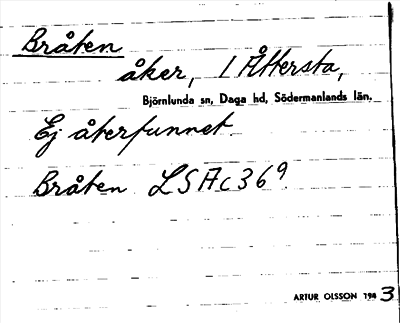 Bråten
åker, 1 Åttersta,
Björnlunda sn, Daga hd, Södermanlands län.
Ej återfunnet.
Bråten LSA c 36 9
ARTUR OLSSON 1943